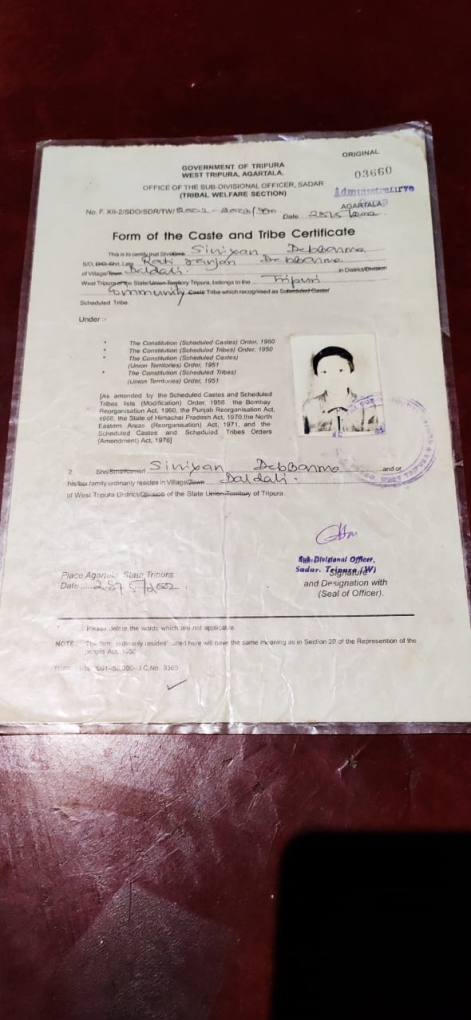 ORIGINAL
GOVERNMENT OF TRIPURA
WEST TRIPURA, AGARTALA.
03660
OFFICE OF THE SUB-DIVISIONAL OFFICER, SADAR
(TRIBAL WELFARE SECTION)
AGARTALA
No. F. XII-2/SDO/SDR/TW/
Date
Form of the Caste and Tribe Certificate
This is to certify that Shri Debbarma
S/O, Debbarma
of Village/Town Baldali. in District/Division
West Tripura of the State/Union Territory Tripura, belongs to the Tripuri
Community Caste Tribe which recognised as Scheduled Caste/
Scheduled Tribe.
Under :-
• The Constitution (Scheduled Castes) Order, 1950
• The Constitution (Scheduled Tribes) Order, 1950
• The Constitution (Scheduled Castes)
(Union Territories) Order, 1951
• The Constitution (Scheduled Tribes)
(Union Territories) Order, 1951
[As amended by the Scheduled Castes and
Scheduled Tribes lists (Modification) Order, 1956 the Bombay
Reorganisation Act, 1960, the Punjab Reorganisation Act,
1966, the State of Himachal Pradesh Act, 1970, the North
Eastern Areas (Reorganisation) Act, 1971, and the
Scheduled Castes and Scheduled Tribes Orders
(Amendment) Act, 1976]
2. Debbarma and or
his/her family ordinarily resides in Village/Town Baldali.
of West Tripura District/Division of the State Union Territory of Tripura.
Sub-Divisional Officer,
Sadar, Tripura (W)
Signature
and Designation with
(Seal of Officer).
Place Agartala, State Tripura
Date
Please delete the words which are not applicable.
NOTE: The term, ordinarily resided used here will have the same meaning as in Section 20 of the Represention of the
people Act, 1950